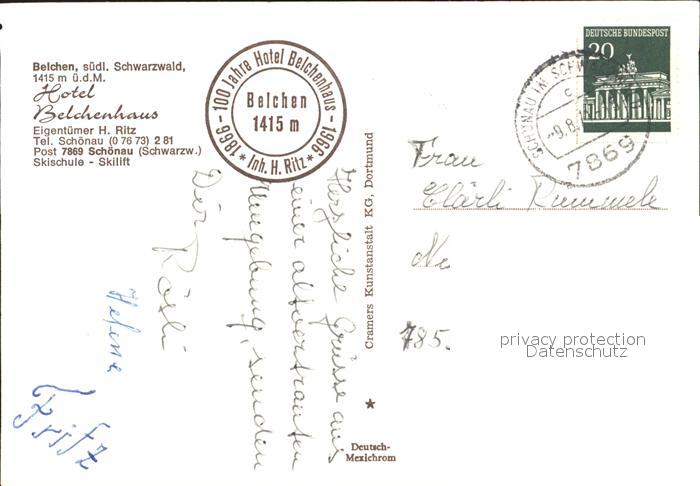 Belchen, südl. Schwarzwald,
1415 m ü.d.M.
Hotel
Belchenhaus
Eigentümer H. Ritz
Tel. Schönau (0 76 73) 2 81
Post 7869 Schönau (Schwarzw.)
Skischule - Skilift
100 Jahre Hotel Belchenhaus
1866 - 1966
Belchen
1415 m
* Inh. H. Ritz *
DEUTSCHE BUNDESPOST
20
SCHÖNAU IM SCHW
7869
Herzliche Grüsse aus
einer altvertrauten
Umgebung, senden
Dir Rösli
Helene
Fritz
Cramers Kunstanstalt KG, Dortmund
Deutsch-
Mexichrom
Frau
Clärli Rummele
785.
privacy protection
Datenschutz